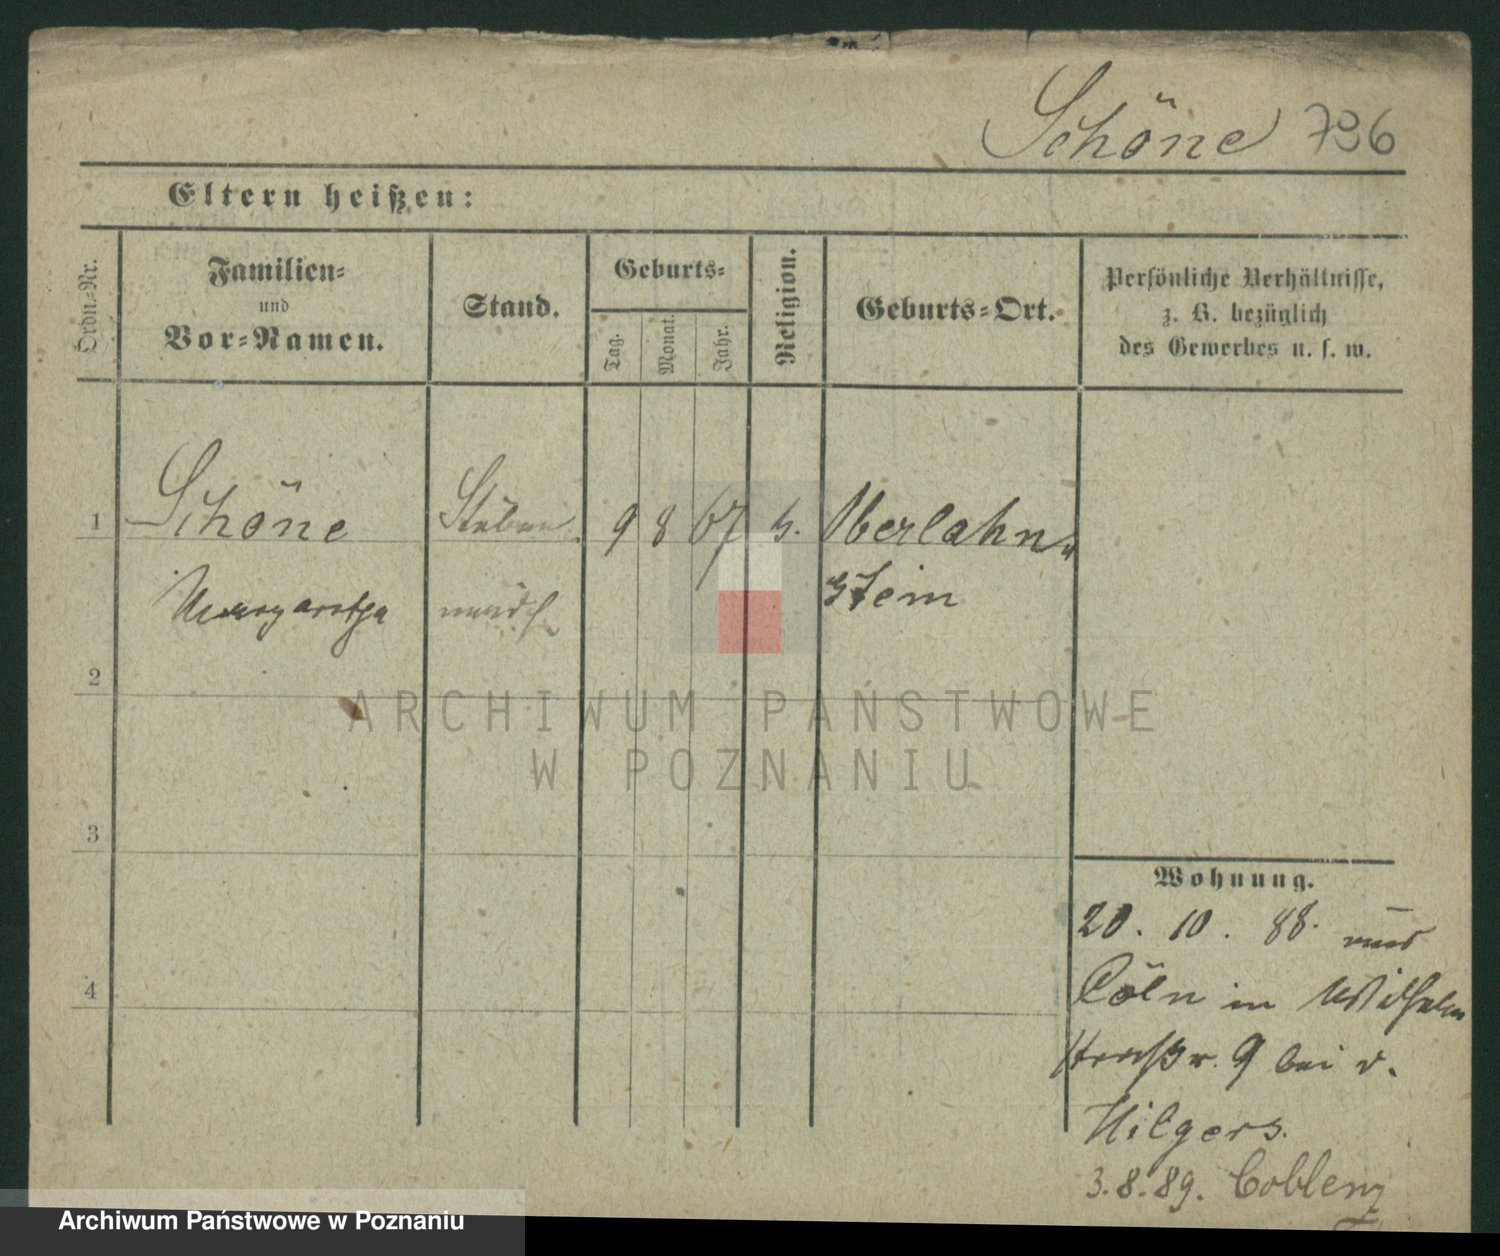 Schöne 736
Eltern heißen:
Ordn.-Nr.
Familien-
und
Vor-Namen.
Stand.
Geburts-
Tag.
Monat.
Jahr.
Religion.
Geburts-Ort.
Persönliche Verhältnisse,
z. B. bezüglich
des Gewerbes u. s. w.
1 Schöne Stuben 9 8 67 Oberlahn-
Margaretha mädch stein
2
3
4
Wohnung.
20. 10. 88.
Cöln in Wilhelm
straße 9 bei d.
Hilgers.
3.8.89. Coblenz
ARCHIWUM PAŃSTWOWE
W POZNANIU
Archiwum Państwowe w Poznaniu